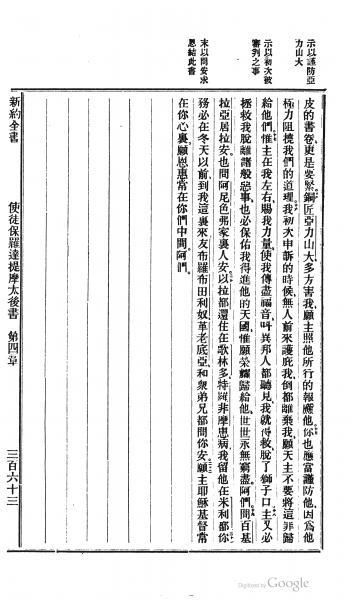 示以謹防亞
力山大
示以初次被
審判之事
末以問安求
恩結此書
皮的書卷更是要緊銅匠亞力山大多方害我願主照他所行的報應他你也應當謹防他因爲他
極力阻撓我們的道理我初次申訴的時候無人前來護庇我倒都離棄我願天主不要將這罪歸
給他們惟主在我左右賜我力量使我傳盡福音叫異邦人都聽見我就得救脫了獅子口主又必
拯救我脫離諸般惡事也必保佑我得進他的天國惟願榮耀歸給他世世永無窮盡阿們問百基
拉亞居拉安也問阿尼色弗家裏人安以拉都還住在歌林多特羅非摩患病我留他在米利都你
務必在冬天以前到我這裏來友布羅布田利奴革老底亞和衆弟兄都問你安願主耶穌基督常
在你心裏願恩惠常在你們中間阿們
新約全書 使徒保羅達提摩太後書 第四章 三百六十三
Digitized by Google